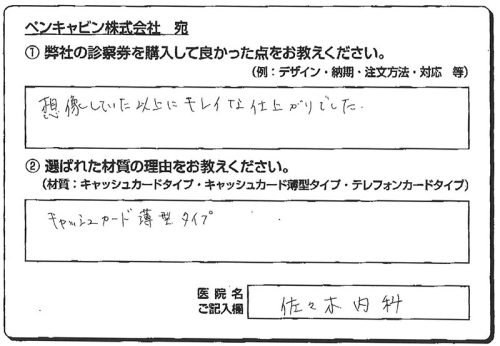 ペンキャビン株式会社 宛
① 弊社の診察券を購入して良かった点をお教えください。
(例：デザイン・納期・注文方法・対応 等)
想像していた以上にキレイな仕上がりでした.
② 選ばれた材質の理由をお教えください。
(材質：キャッシュカードタイプ・キャッシュカード薄型タイプ・テレフォンカードタイプ)
キャッシュカード薄型タイプ
医院名
ご記入欄
佐々木内科